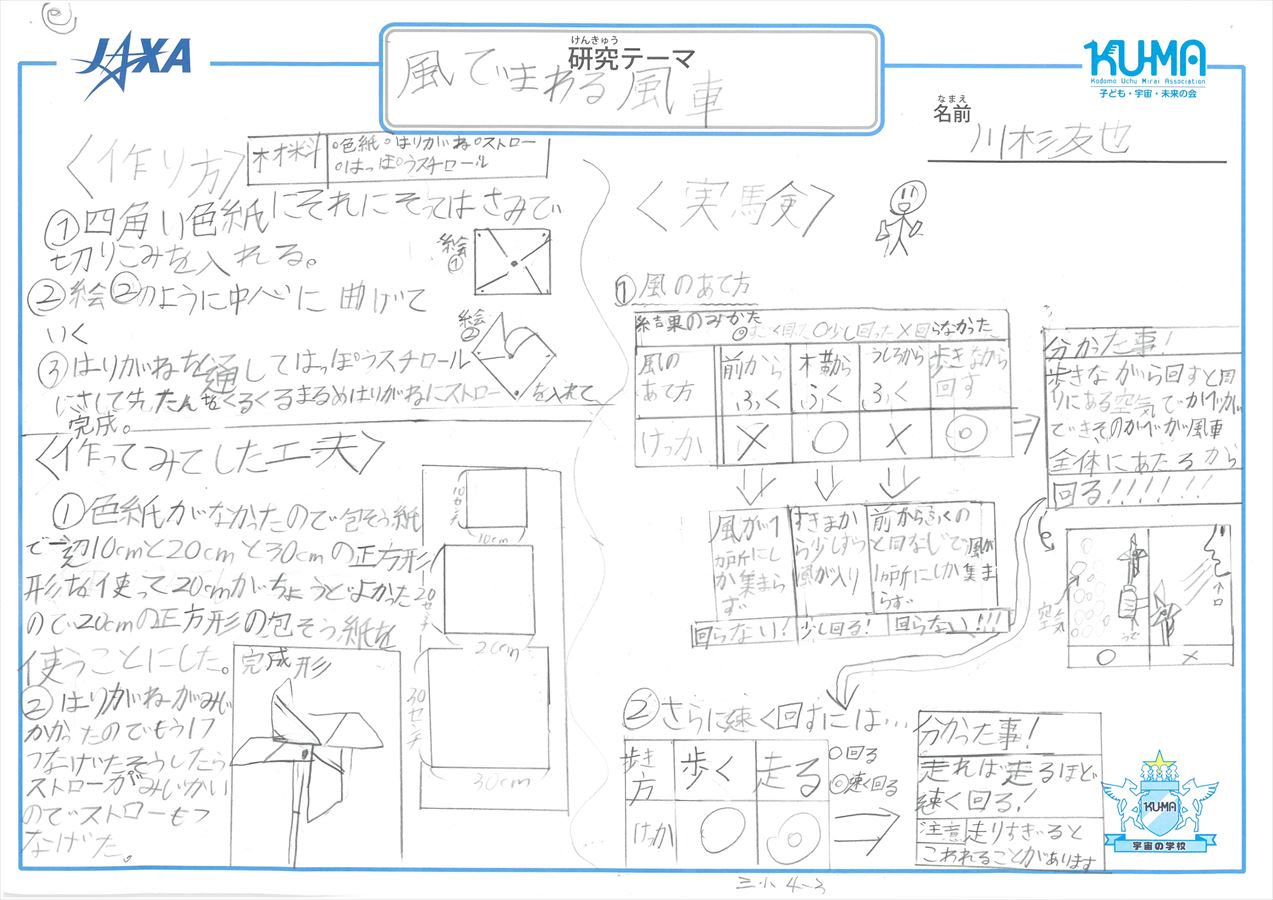 JAXA
けんきゅう
研究テーマ
風でまわる風車
KUMA
Kodomo Uchu Mirai Association
子ども・宇宙・未来の会
なまえ
名前
川杉友也
〈作り方〉
材料
°色紙°はりがね°ストロー
°はっぽうスチロール
①四角い色紙にそれにそってはさみで
切りこみを入れる。
絵①
②絵②のように中心に曲げて
いく
絵②
③はりがねを通してはっぽうスチロール
にさして先たんをくるくるまるめはりがねにストローを入れて
完成。
〈作ってみてした工夫〉
①色紙がなかったので包そう紙
で一辺10cmと20cmと30cmの正方形
形を使って20cmがちょうどよかった
ので20cmの正方形の包そう紙を
使うことにした。
②はりがねがみじ
かかったのでもう1つ
つなげたそうしたら
ストローがみじかい
のでストローもつ
なげた。
完成形
10センチ
10cm
20センチ
20cm
30センチ
30cm
〈実験〉
①風のあて方
結果のみかた
◎すごく回た〇少し回った×回らなかった
風の
あて方
前から
ふく
横から
ふく
うしろから
ふく
歩きながら
回す
けっか
× 〇 × ◎
風が1
か所にし
か集まら
ず
回らない!
すきまか
ら少しずつ
風が入り
少し回る!
前からふくの
と同なじで風が
1か所にしか集ま
らず
回らない!!!
分かった事!
歩きながら回すと周
りにある空気でかべが
できそのかべが風車
全体にあたるから
回る!!!!!!
空気
うで
口
〇 ×
②さらに速く回すには…
歩き方
歩く
走る
〇回る
◎速く回る
けっか
〇 ◎
分かった事!
走れば走るほど
速く回る!
注意 走りすぎると
こわれることがあります
KUMA
宇宙の学校
三小 4-3